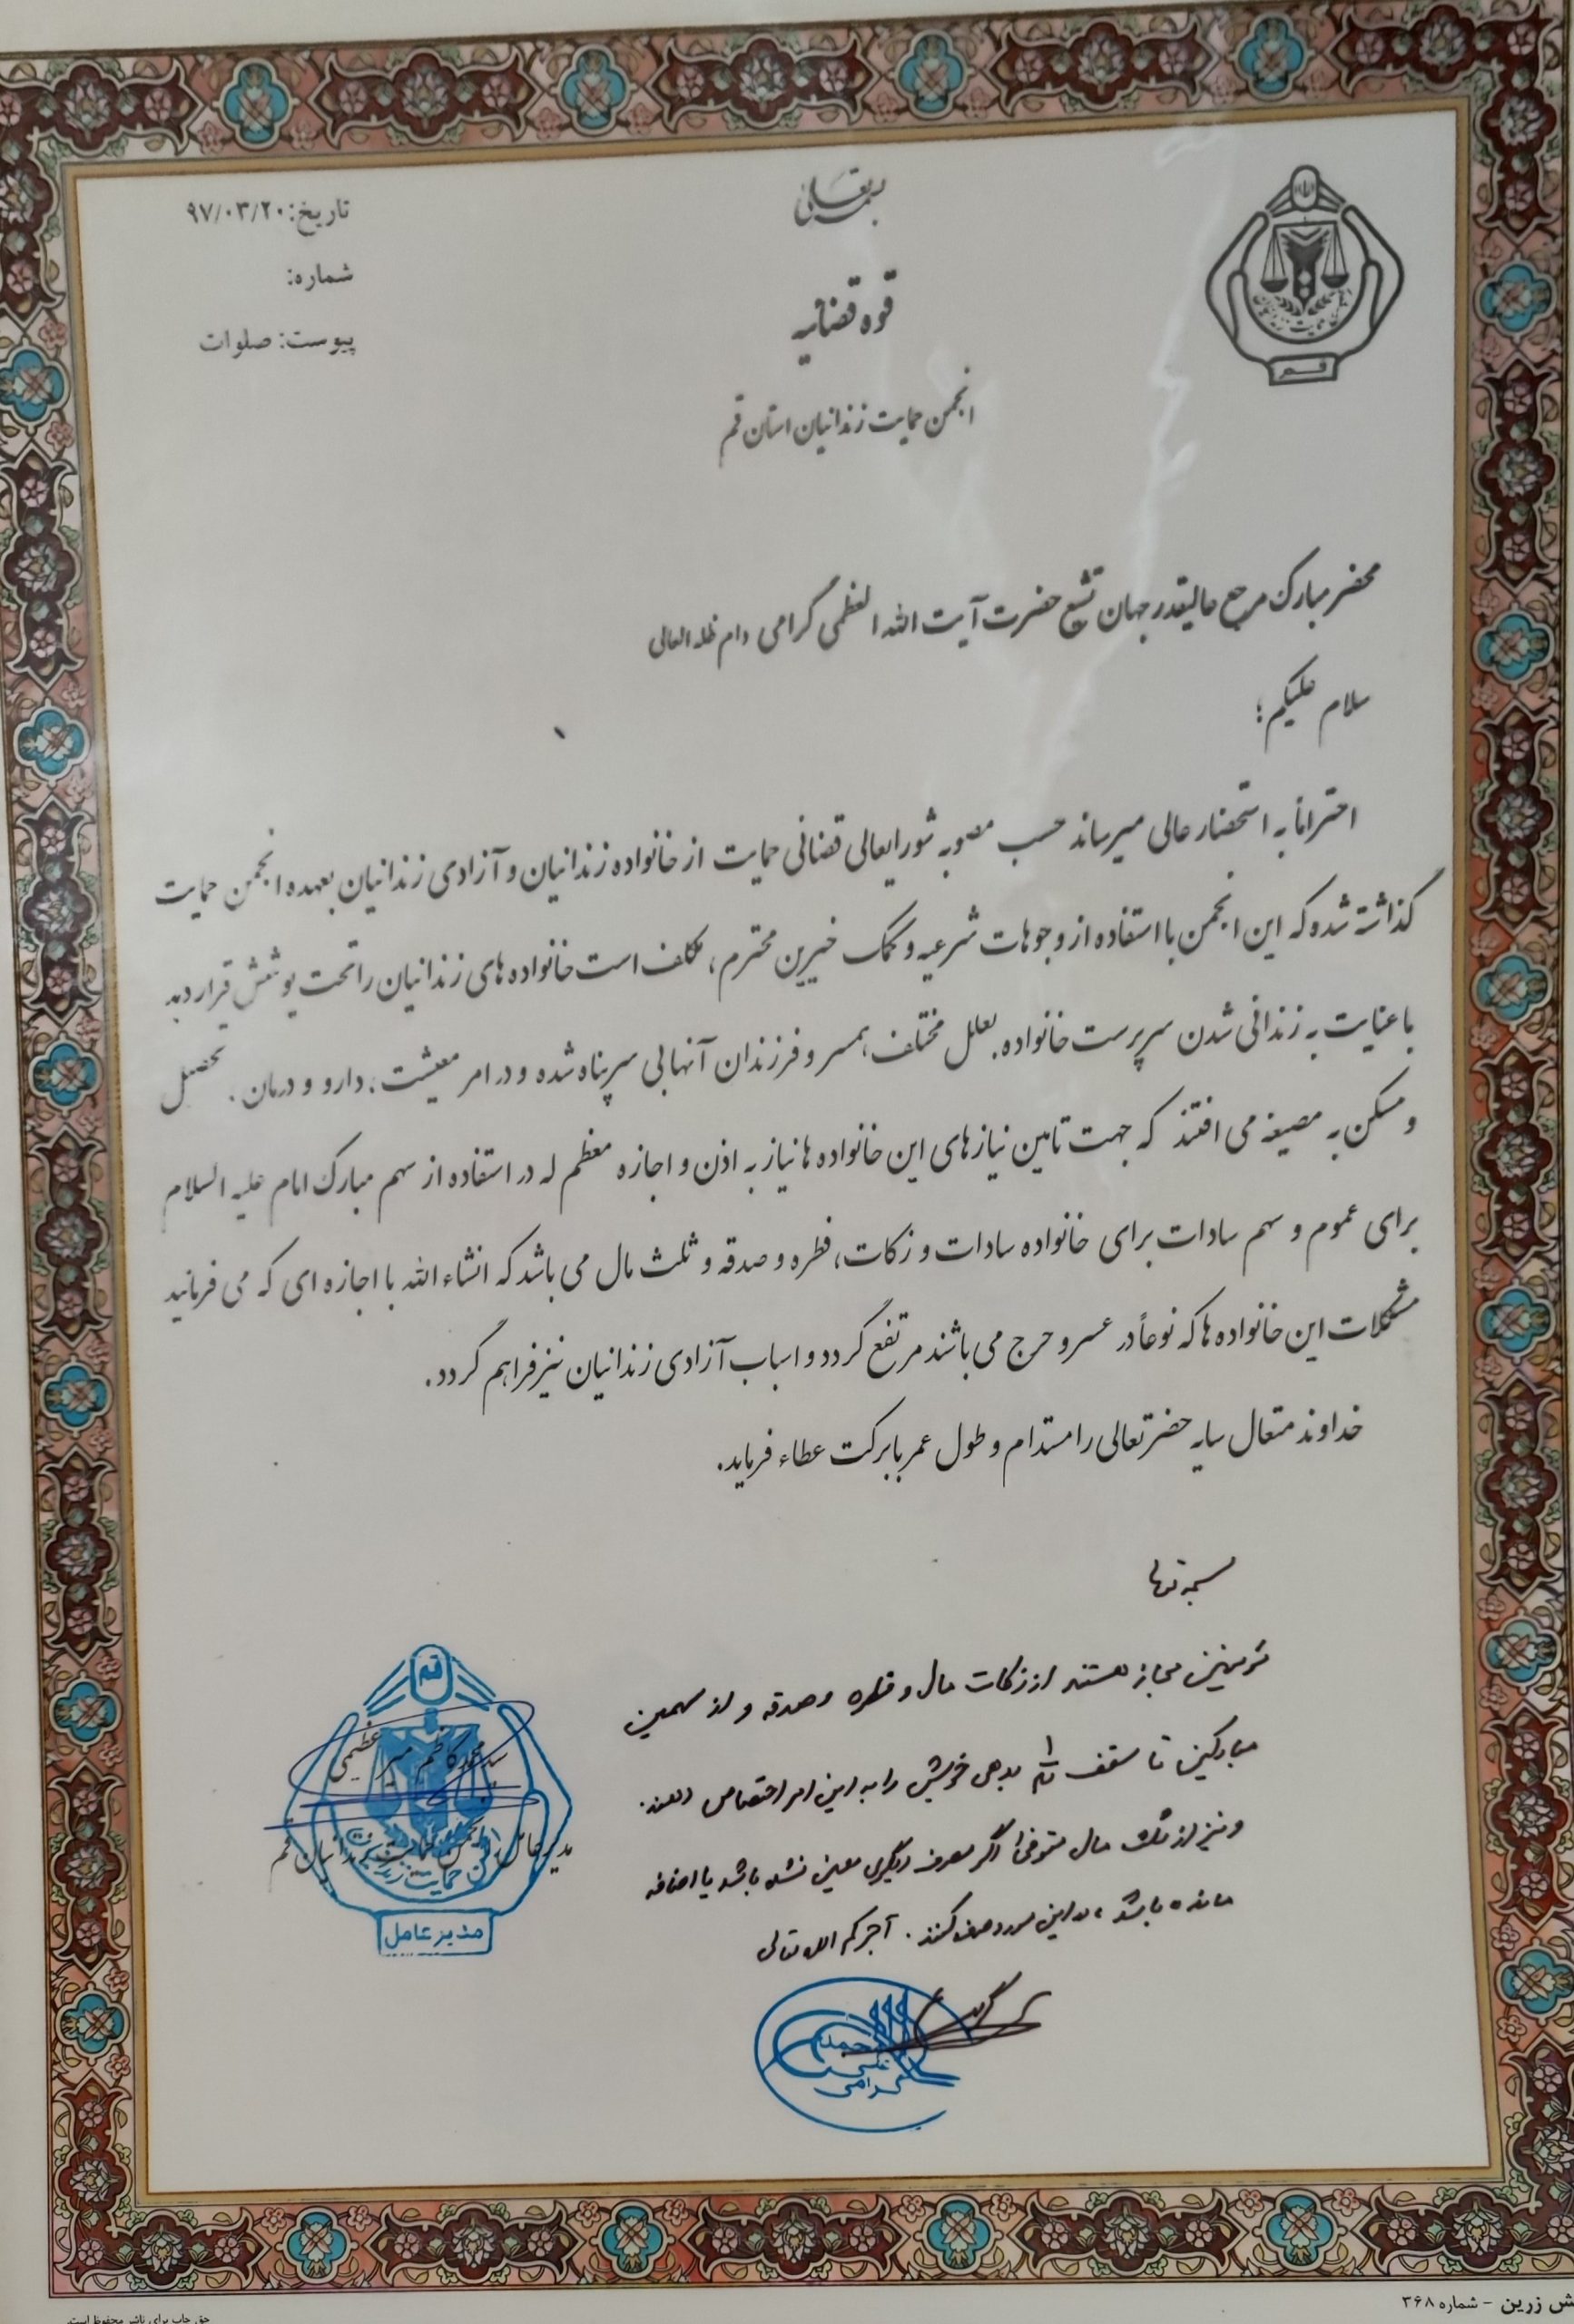 بسمه تعالی
تاریخ: ۹۷/۰۳/۲۰
شماره:
پیوست: صلوات
قوه قضائیه
انجمن حمایت زندانیان استان قم
قم
محضر مبارک مرجع عالیقدر جهان تشیع حضرت آیت الله العظمی گرامی دام ظله العالی
سلام علیکم؛
احتراماً به استحضار عالی میرساند حسب مصوبه شورایعالی قضائی حمایت از خانواده زندانیان و آزادی زندانیان بعهده انجمن حمایت
گذاشته شده که این انجمن با استفاده از وجوهات شرعیه و کمک خیرین محترم، مکلف است خانواده های زندانیان را تحت پوشش قرار دهد
با عنایت به زندانی شدن سرپرست خانواده بعلل مختلف، همسر و فرزندان آنها بی سرپناه شده و در امر معیشت، دارو و درمان، تحصیل
و مسکن به مضیغه می افتند که جهت تامین نیازهای این خانواده ها نیاز به اذن و اجازه معظم له در استفاده از سهم مبارک امام علیه السلام
برای عموم و سهم سادات برای خانواده سادات و زکات، فطره و صدقه و ثلث مال می باشد که انشاء الله با اجازه ای که می فرمائید
مشکلات این خانواده ها که نوعاً در عسر و حرج می باشند مرتفع گردد و اسباب آزادی زندانیان نیز فراهم گردد.
خداوند متعال سایه حضرتعالی را مستدام و طول عمر با برکت عطاء فرماید.
بسمه تعالی
مؤمنین مجاز هستند از زکات مال و فطره و صدقه و از سهمین
مبارکین تا سقف بدهی خویش را به این امر اختصاص دهند.
و نیز از ثلث مال متوفی اگر مصرف دیگری معین نشده باشد یا اضافه
مانده باشد، در این مورد صرف کنند. آجرکم الله تعالی
قم
سید محمد کاظم میر عظیمی
مدیر عامل انجمن حمایت زندانیان قم
مدیر عامل
محمد علی گرامی
ش زرین - شماره ۳۶۸
حق چاپ برای ناشر محفوظ است.